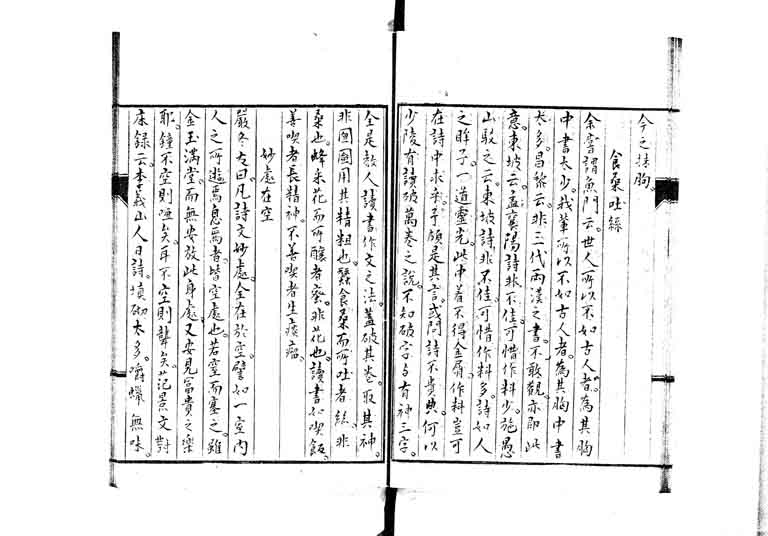 今之捧胸。
食桑吐絲
余嘗謂魚門云。世人所以不如古人者。為其胸
中書太少。我輩所以不如古人者。為其胸中書
太多。昌黎云。非三代兩漢之書。不敢觀。亦即此
意。東坡云。孟襄陽詩非不佳。可惜作料少。施愚
山駁之云。東坡詩非不佳。可惜作料多。詩如人
之眸子。一道靈光。此中着不得金屑。作料豈可
在詩中求乎。予頗是其言。或問詩不貴典。何以
少陵有讀破萬卷之說。不知破字與有神三字。
全是教人讀書作文之法。蓋破其卷。取其神。
非囫圇用其糟粕也。蠶食桑而所吐者絲。非
桑也。蜂采花而所釀者蜜。非花也。讀書如喫飯。
善喫者長精神。不善喫者生痰瘤。
妙處在空
嚴冬友曰。凡詩文妙處。全在於空。譬如一室內
人之所遊焉息焉者。皆空處也。若窒而塞之。雖
金玉滿堂。而無安放此身處。又安見富貴之樂
耶。鐘不空則啞矣。耳不空則聾矣。范景文對
床録云。李義山人日詩。填砌太多。嚼蠟無味。